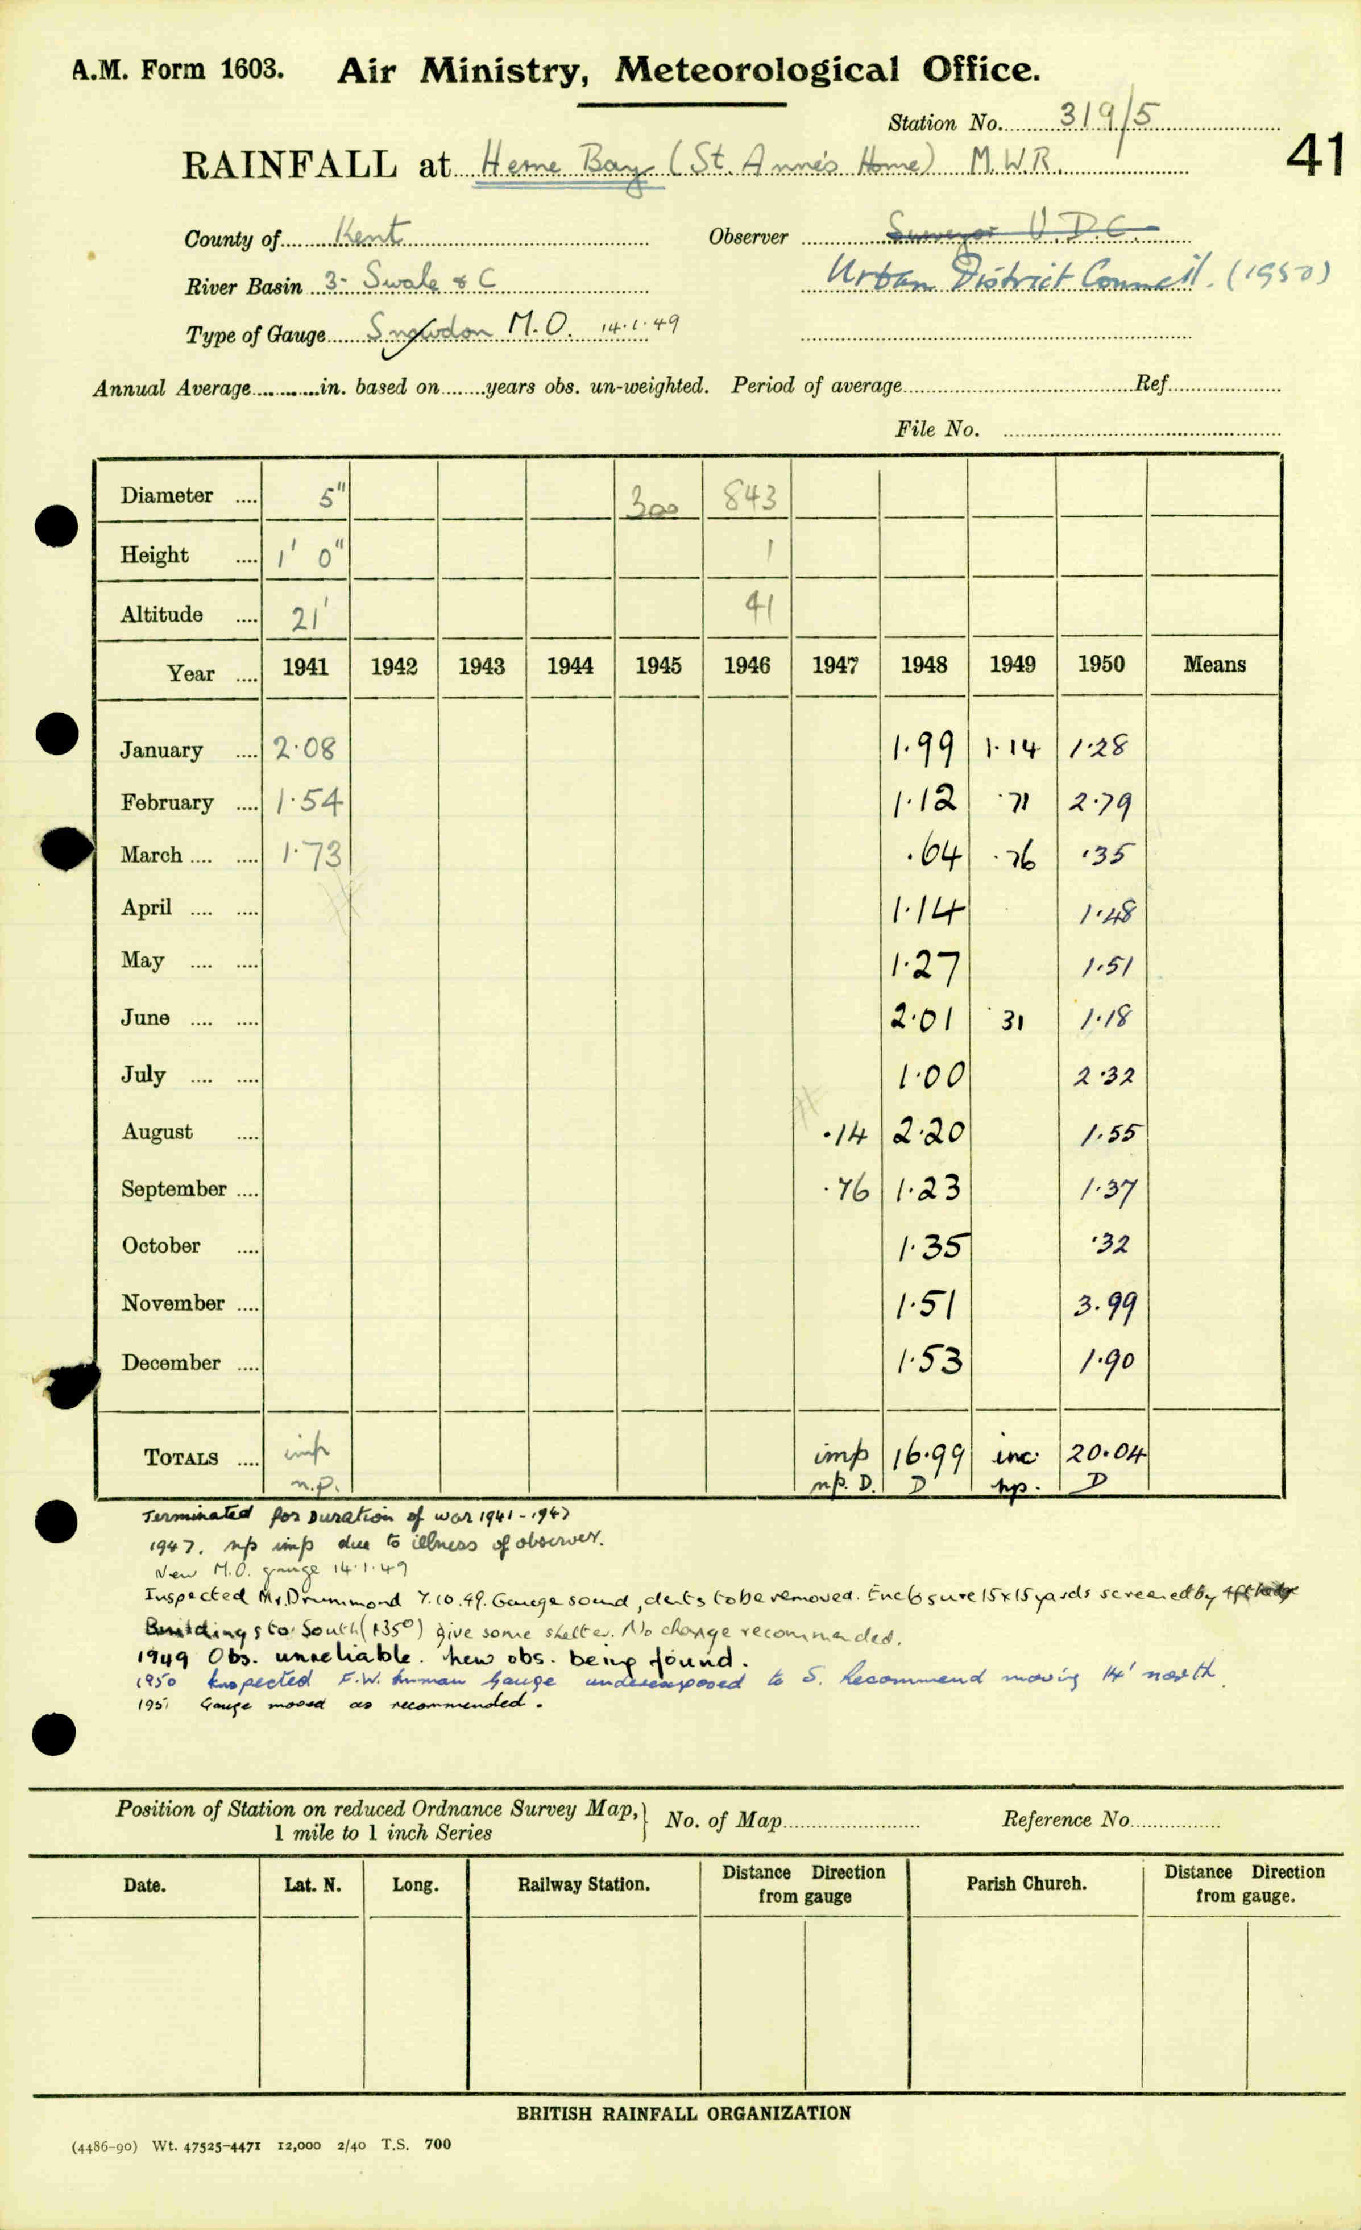 A.M. Form 1603. Air Ministry, Meteorological Office.
Station No. 319/5
41
RAINFALL at Herne Bay (St. Anne's Home) M.W.R.
County of Kent Observer Surveyor U.D.C.
River Basin 3- Swale & C Urban District Council. (1950)
Type of Gauge Snowdon M.O. 14.1.49
Annual Average in. based on years obs. un-weighted. Period of average Ref
File No.
Diameter 5" 300 843
Height 1' 0" 1
Altitude 21' 41
Year 1941 1942 1943 1944 1945 1946 1947 1948 1949 1950 Means
January 2.08 1.99 1.14 1.28
February 1.54 1.12 .71 2.79
March 1.73 .64 .76 .35
April 1.14 1.48
May 1.27 1.51
June 2.01 31 1.18
July 1.00 2.32
August .14 2.20 1.55
September .76 1.23 1.37
October 1.35 .32
November 1.51 3.99
December 1.53 1.90
TOTALS imp imp 16.99 inc 20.04
n.p. np. D. D np. D
Terminated for Duration of war 1941-1947
1947. np imp due to illness of observer.
New M.O. gauge 14.1.49
Inspected Mr. Drummond 7.10.49. Gauge sound, dents to be removed. Enclosure 15x15 yards screened by 4ft hedge
Buildings to South (135°) give some shelter. No change recommended.
1949 Obs. unreliable. New obs. being found.
1950 Inspected F.W. Inman Gauge underexposed to S. Recommend moving 14' north.
1951 Gauge moved as recommended.
Position of Station on reduced Ordnance Survey Map, 1 mile to 1 inch Series No. of Map Reference No
Date. Lat. N. Long. Railway Station. Distance Direction from gauge Parish Church. Distance Direction from gauge.
BRITISH RAINFALL ORGANIZATION
(4486-90) Wt. 47525-4471 12,000 2/40 T.S. 700